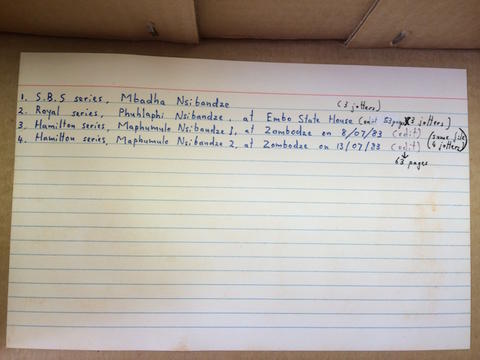 1. S.B.S series, Mbadha Nsibandze (3 jotters)
2. Royal series, Phuhlaphi Nsibandze, at Embo State House (edit 53 pages 3 jotters)
3. Hamilton series, Maphumulo Nsibandze 1, at Zombodze on 8/07/83 (edit) (same file
4. Hamilton series, Maphumulo Nsibandze 2, at Zombodze on 13/07/83 (edit) 4 jotters)
63 pages